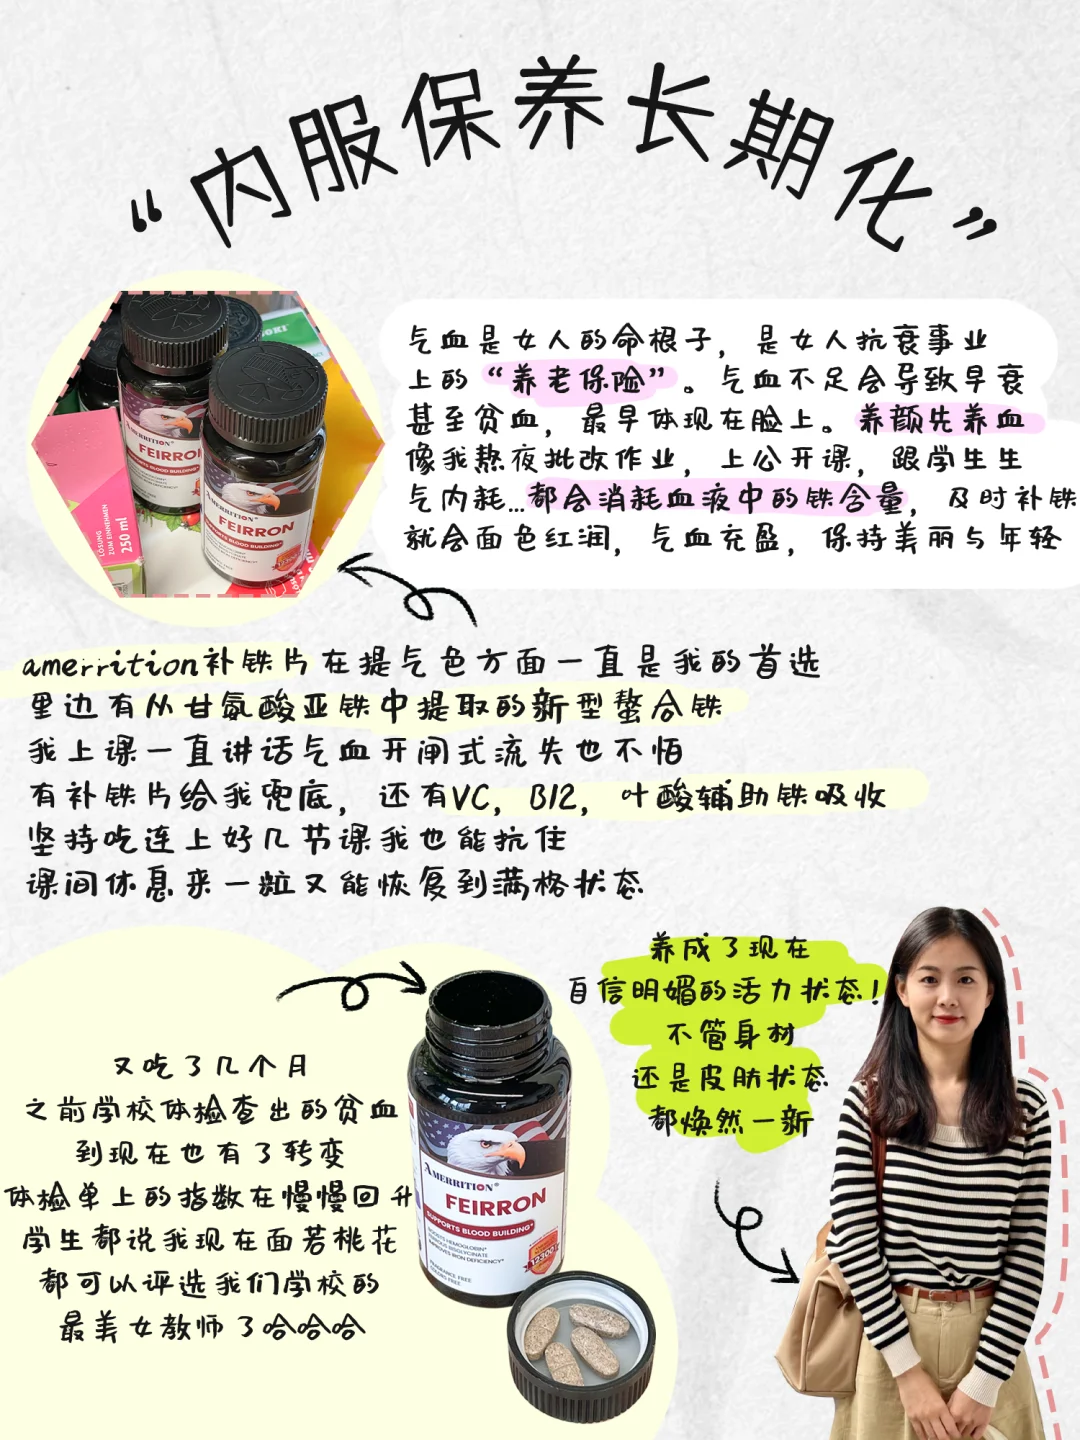 “内服保养长期化”
气血是女人的命根子，是女人抗衰事业
上的“养老保险”。气血不足会导致早衰
甚至贫血，最早体现在脸上。养颜先养血
像我熬夜批改作业，上公开课，跟学生生
气内耗...都会消耗血液中的铁含量，及时补铁
就会面色红润，气血充盈，保持美丽与年轻
AMERRITION®
FEIRRON
SUPPORTS BLOOD BUILDING*
LÖSUNG
ZUM EINNEHMEN
250 ml
amerrition补铁片在提气色方面一直是我的首选
里边有从甘氨酸亚铁中提取的新型螯合铁
我上课一直讲话气血开闸式流失也不怕
有补铁片给我兜底，还有VC，B12，叶酸辅助铁吸收
坚持吃连上好几节课我也能抗住
课间休息来一粒又能恢复到满格状态
养成了现在
自信明媚的活力状态！
不管身材
还是皮肤状态
都焕然一新
又吃了几个月
之前学校体检查出的贫血
到现在也有了转变
体检单上的指数在慢慢回升
学生都说我现在面若桃花
都可以评选我们学校的
最美女教师了哈哈哈
AMERRITION®
FEIRRON
SUPPORTS BLOOD BUILDING*
BOOSTS HEMOGLOBIN*
FERROUS BISGLYCINATE
IMPROVES IRON DEFICIENCY*
12300
FRAGRANCE FREE